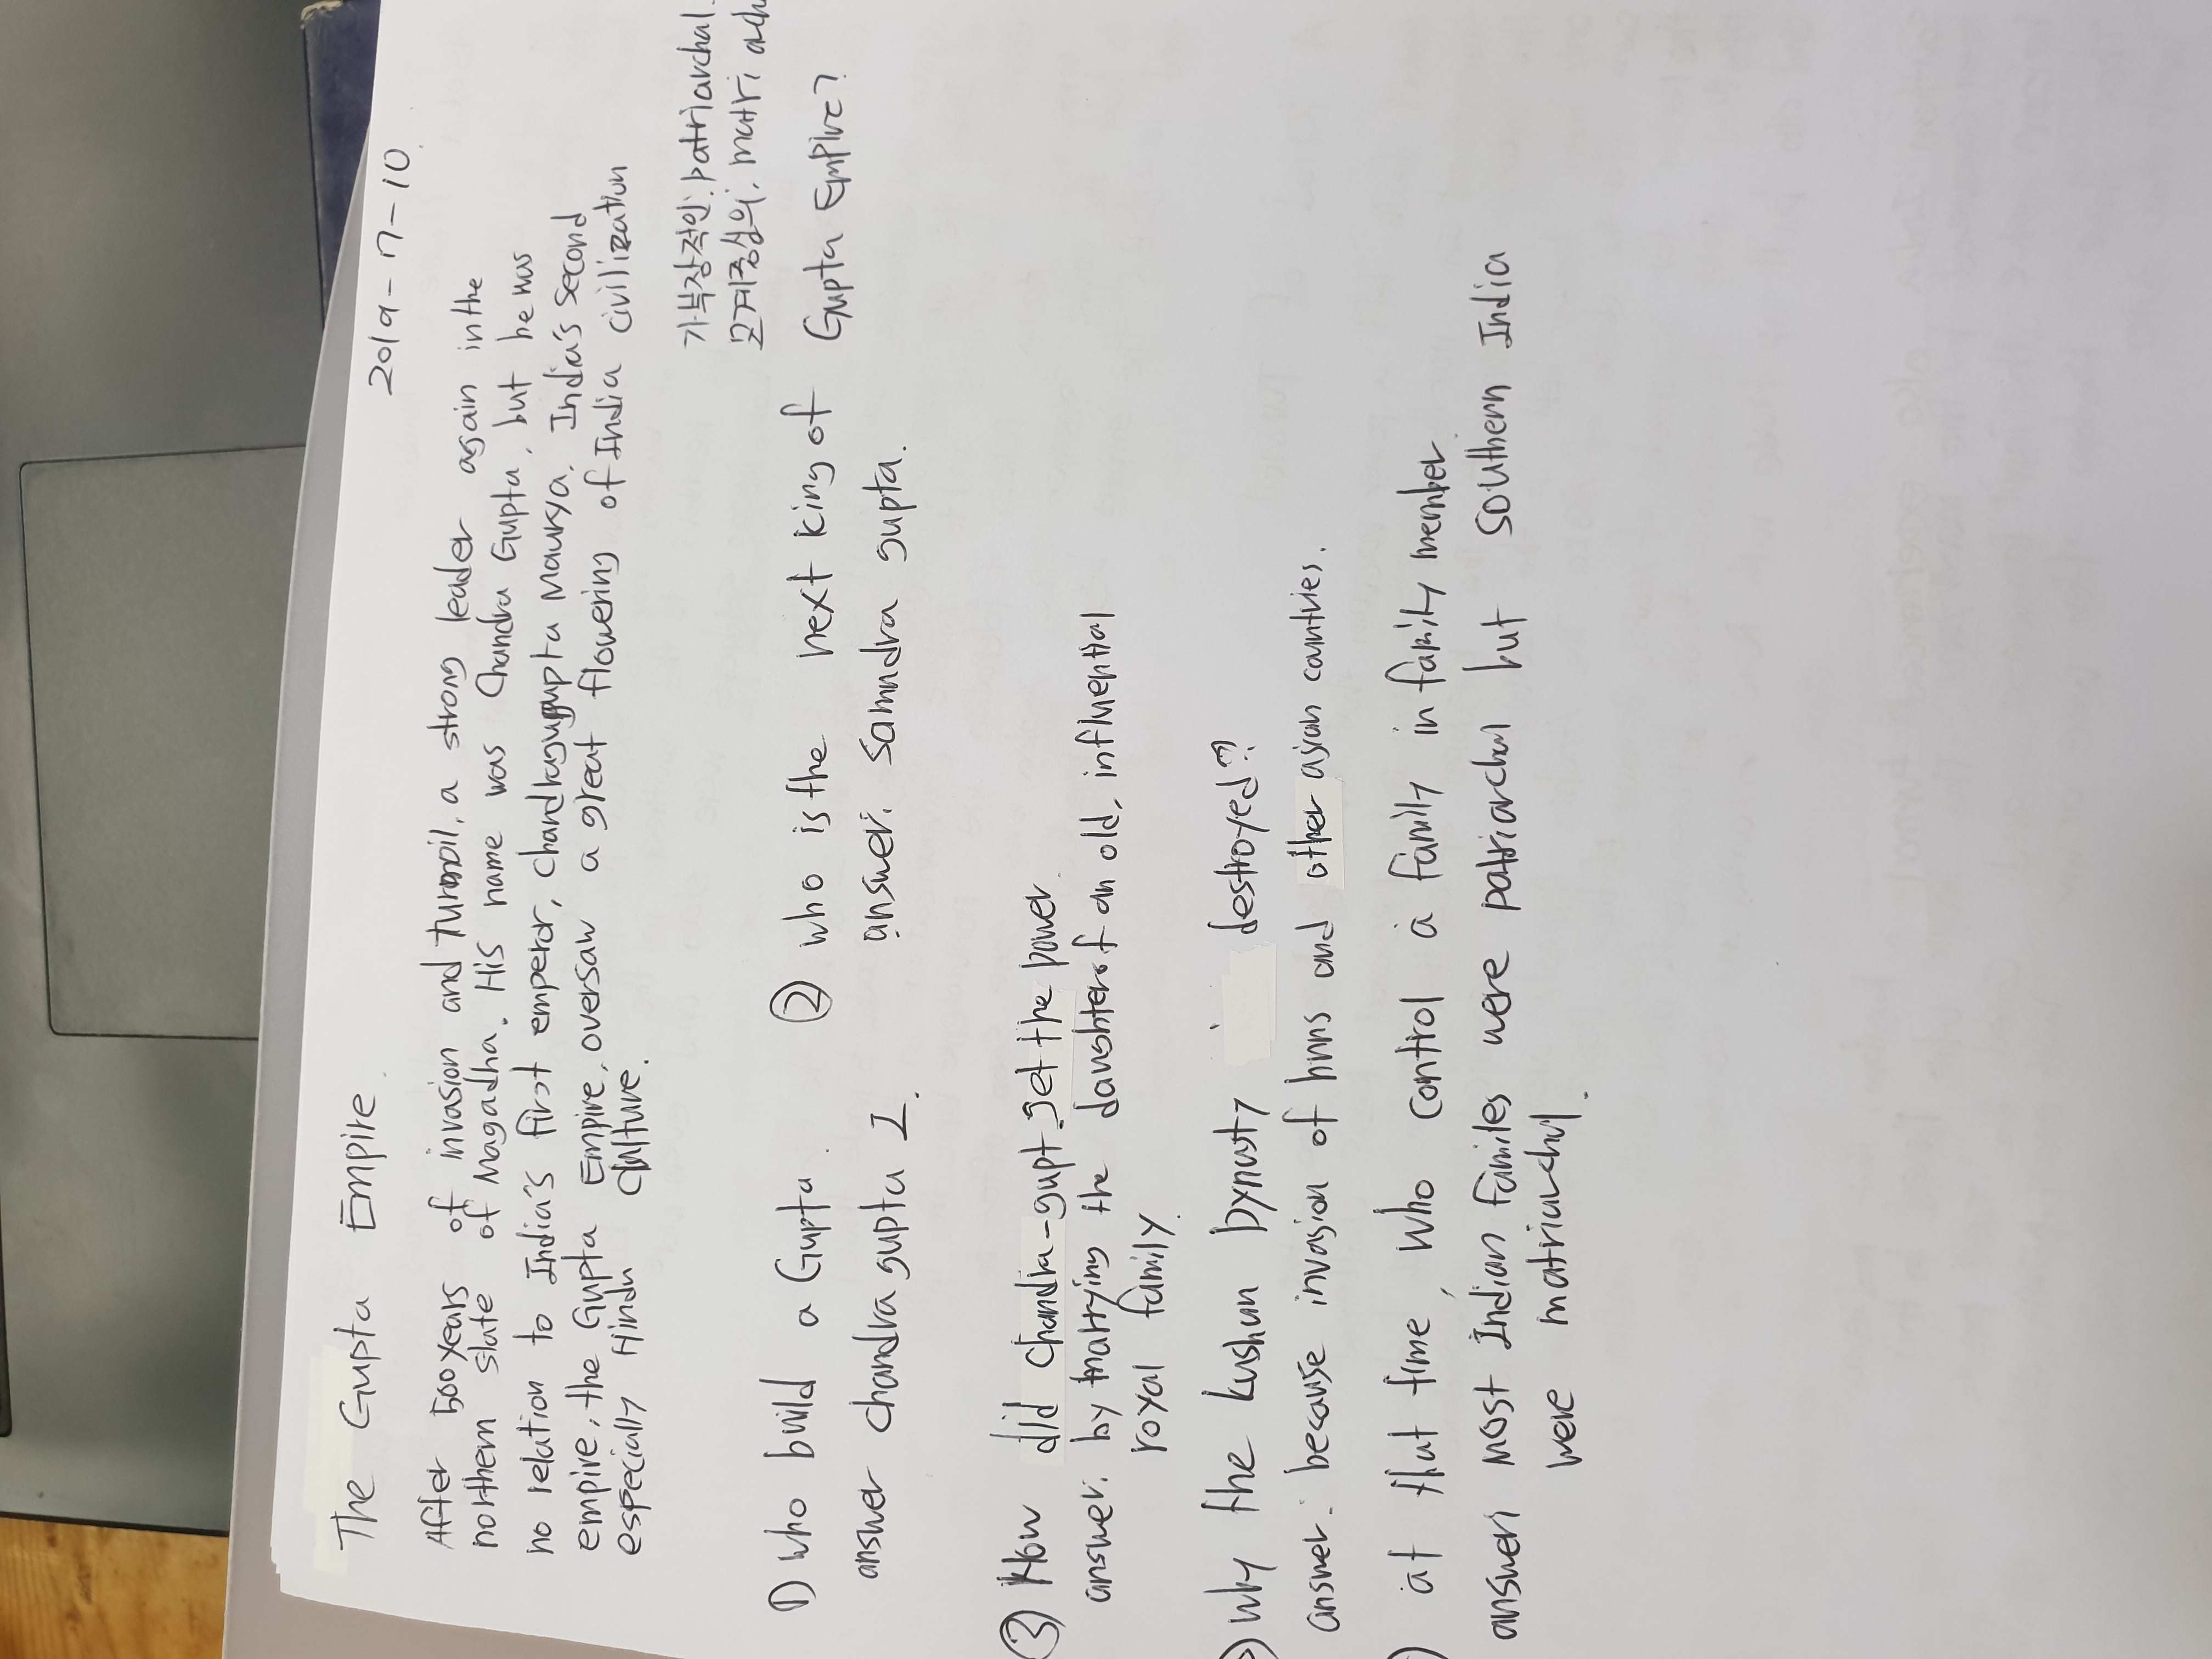 The Gupta Empire.
2019-7-10.
After 500 years of invasion and turmoil, a strong leader again in the
northern state of Magadha. His name was Chandra Gupta, but he was
no relation to India's first emperor, Chandragupta Maurya. India's second
empire, the Gupta Empire, oversaw a great flowering of India civilization
especially Hindu culture.
가부장적인: patriarchal.
모계중심의,
① who build a Gupta.
answer chandra gupta I.
② who is the next king of Gupta Empire?
answer. Samudra gupta.
③ How did chandra-gupt get the power.
answer. by marrying the daughter of an old, influential
royal family.
why the kushan Dynasty destroyed??
answer. because invasion of huns and other asian countries.
at that time, who control a family in family member.
answer: most Indian familes were patriarchal but southern India
were matriarchal.